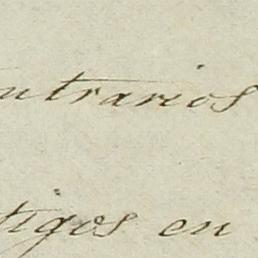 ntrarios
tigos en